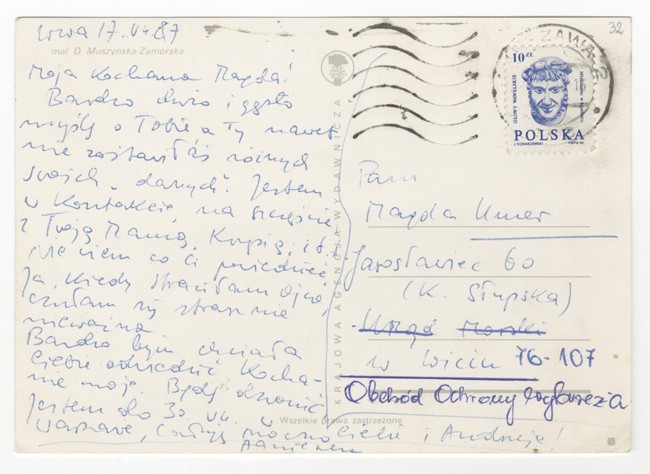 17.VII.87
mal. D. Muszyńska-Zamorska
Moja Kochana Magda!
Bardzo dużo i gęsto
myślę o Tobie a Ty nawet
nie zostawiłaś różnych
swoich „danych”. Jestem
w kontakcie, na szczęście,
z Twoją Mamą, i t.d.
Nie wiem co Ci powiedzieć
Ja, kiedy straciłam ojca,
czułam się strasznie
nieważna
Bardzo bym chciała
Ciebie odwiedzić Kocha-
nie moje. Będę dzwonić
Jestem do 30 VII w
Warszawie, całuję mocno Ciebie i Andrzeja!
Agnieszka
KRAJOWA AGENCJA WYDAWNICZA
Wszelkie prawa zastrzeżone
32
WARSZAWA
10 ZŁ
POLSKA
Pani
Magda Umer
Jarosławiec 60
(K. Słupska)
Urząd Morski
w Wiciu 76-107
Obchód Ochrony Wybrzeża